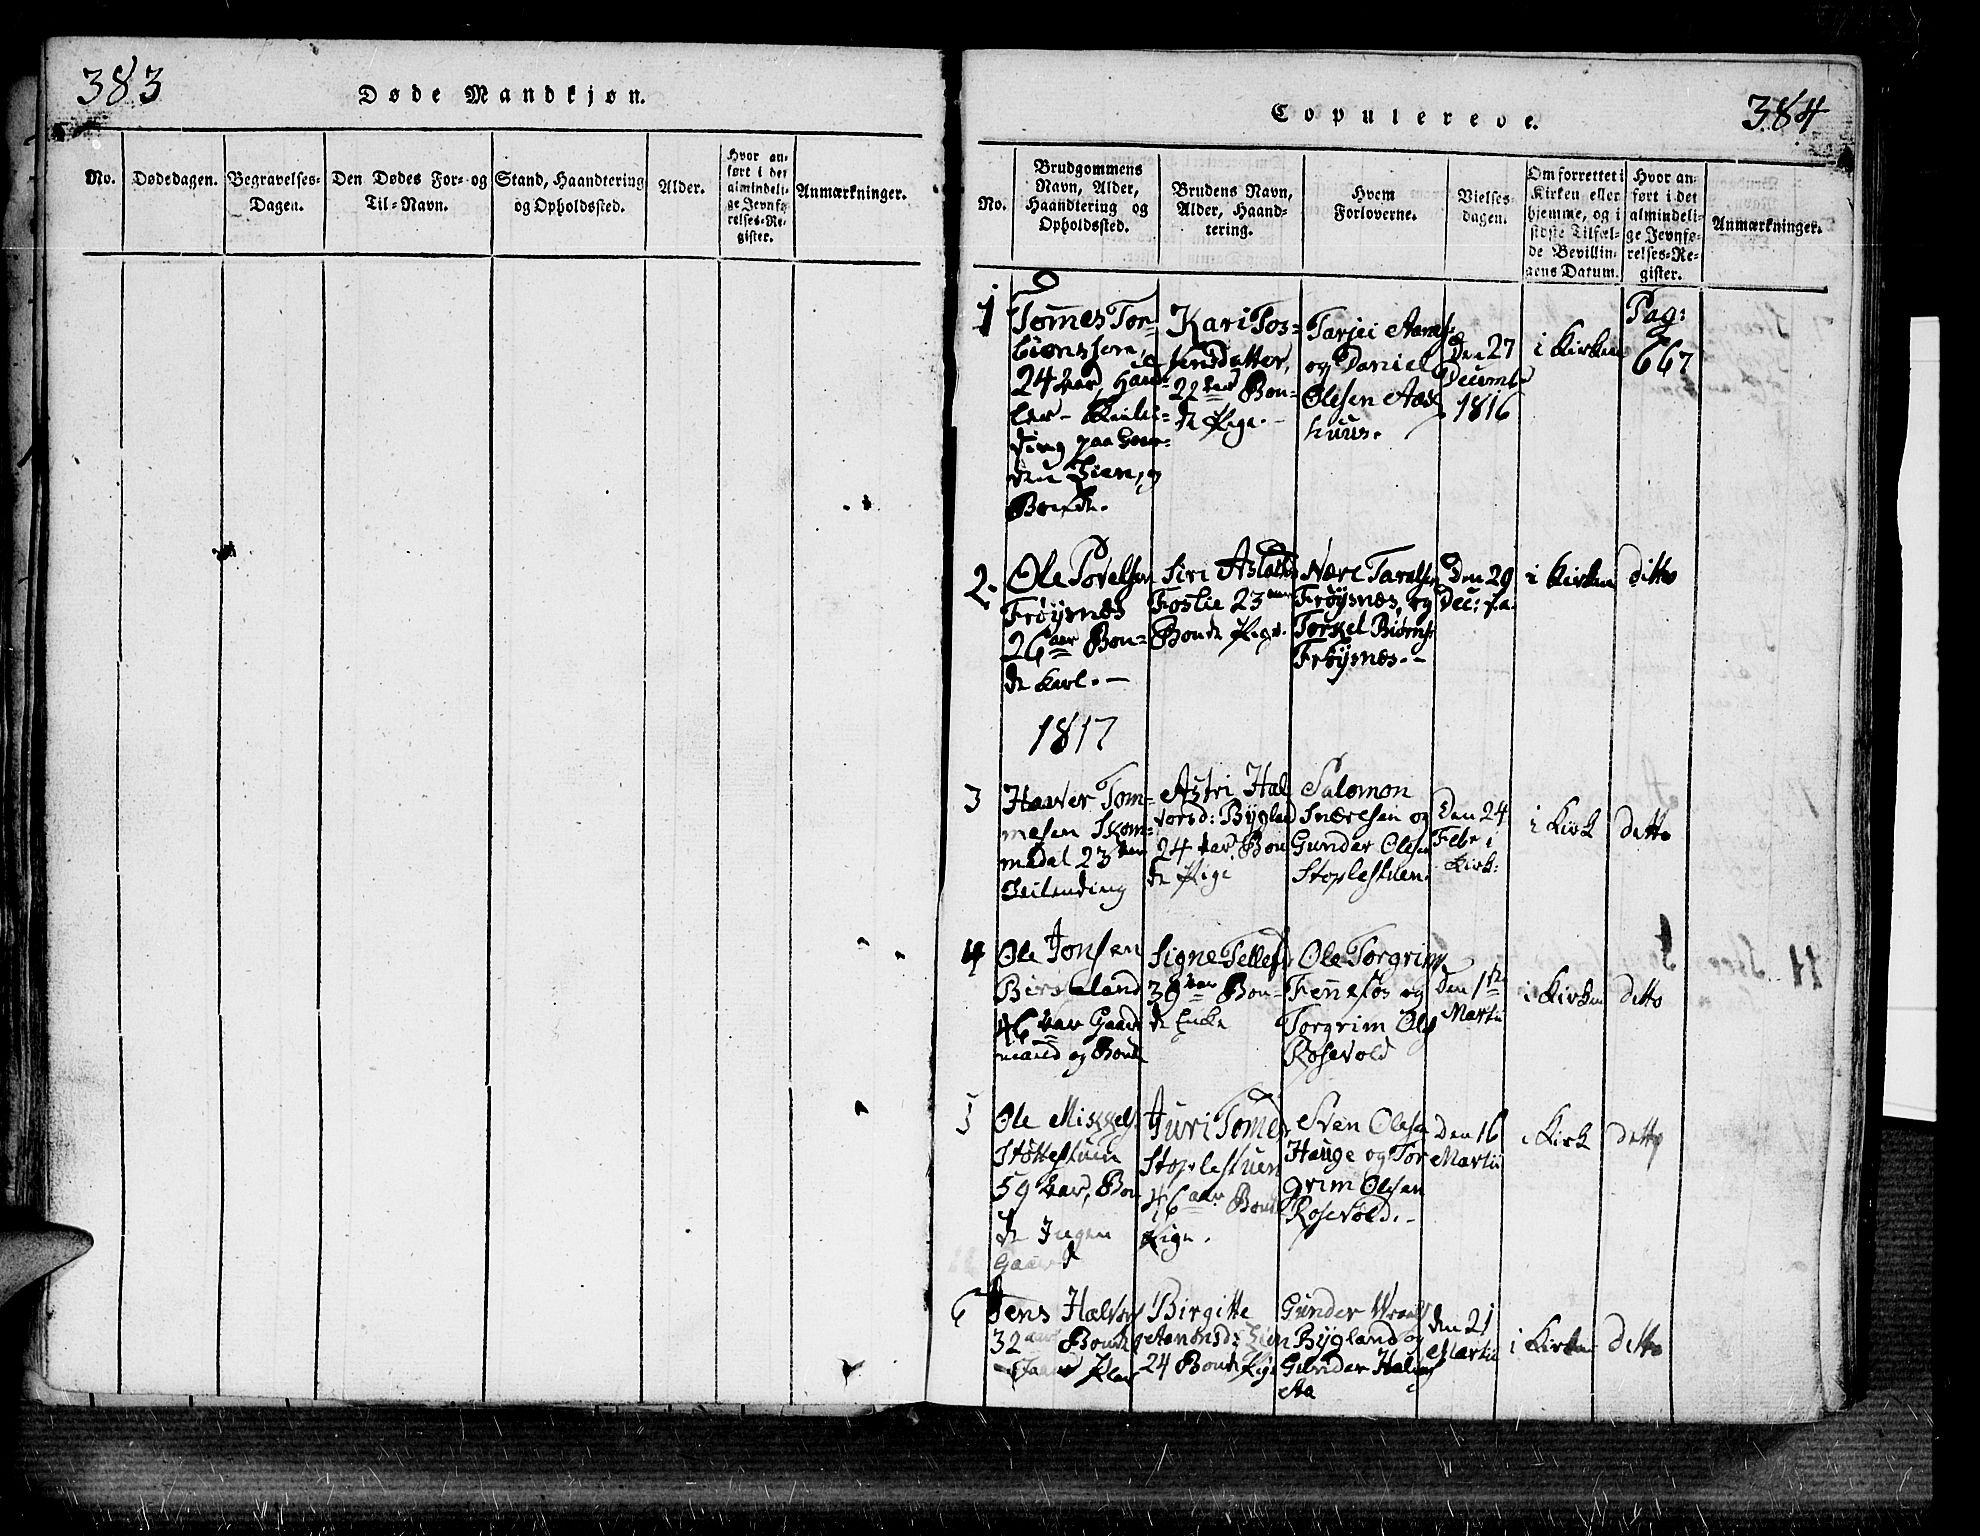 383
Døde Mandkjøn.
No.
Dødedagen.
Begravelses-
Dagen.
Den Dødes For- og
Til-Navn.
Stand, Haandtering
og Opholdssted.
Alder.
Hvor an-
ført i det
almindeli-
ge Jevnfø-
relses-Re-
gister.
Anmærkninger.
384
Copulerede.
No.
Brudgommens
Navn, Alder,
Haandtering og
Opholdssted.
Brudens Navn,
Alder, Haand-
tering.
Hvem
Forloverne.
Vielses-
dagen.
Om forrettet i
Kirken eller
hjemme, og i
sidste Tilfæl-
de Bevillin-
gens Datum.
Hvor an-
ført i det
almindeli-
ge Jevnfø-
relses-Re-
gister.
Anmærkninger.
1
Tomes Tor-
biønssøn,
24 Aar,
paa
den
Bonde.
Kari Tos-
tensdatter,
22 Aar Bon-
de Pige.
Tarjei
og Daniel
Olesen
huus.
Den 27
Decembr
1816
i Kirken
Pag:
667
2.
Ole Povelsen
Frøysnæs
26 aar Bon-
de Karl.
Siri Aslaks
Foslie 23 aar
Bonde Pige.
Nære Taralsen
Frøysnæs, og
Torkel Biørns
Frøysnæs.
Den 29
Dec:
i Kirken
ditto
1817
3
Haaver Tom-
mesen Skom-
medal 23 Aar
Leilending
Astri Hal
vorsd: Bygland
24 Aar Bon
de Pige
Salomon
Snæresen og
Gunder Olesen
Stoplestuen.
Den 24
Febr i
Kirk:
i Kirk
detto
4
Ole Jonsen
Birkeland
46 Aar Gaard
mand og Bonde
Signe Tellefsd
39 Aar Bon-
de Encke
Ole Torgrims
Fennefos og
Torgrim Ols
Rosevold
Den 1ste
Martii
i Kirken
detto
5
Ole Mikkels
Støttestuen
59 Aar, Bon
de Ingen
Gaard
Juri Tomesd
Stoplestuen
46 aar Bonde
Pige.
Sven Olesen
Hauge og Tor
grim Olesen
Rosevold.
Den 16
Martii
i Kirk
detto
6
Jens Halvors
32 aar Bonde
Birgitte
Amonsd:
24 Bonde Pige
Gunder
Bygland og
Gunder Halvors
Aa
den 21
Martii
i Kirken
detto